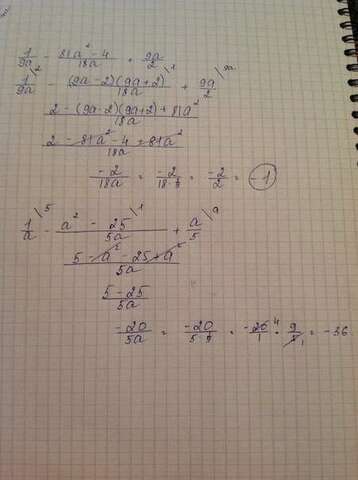 1/9a - 81a² - 4/18a + 9a/2
1/9a \2 - (9a - 2)(9a + 2)/18a \1 + 9a/2 \9a
2 - (9a - 2)(9a + 2) + 81a²/18a
2 - 81a² - 4 + 81a²/18a
-2/18a = -2/18 · = -2/2 = -1
1/a \5 - a² - 25/5a \1 + a/5 \a
5 - a² - 25 + a²/5a
5 - 25/5a
-20/5a = -20/5 · = = -36